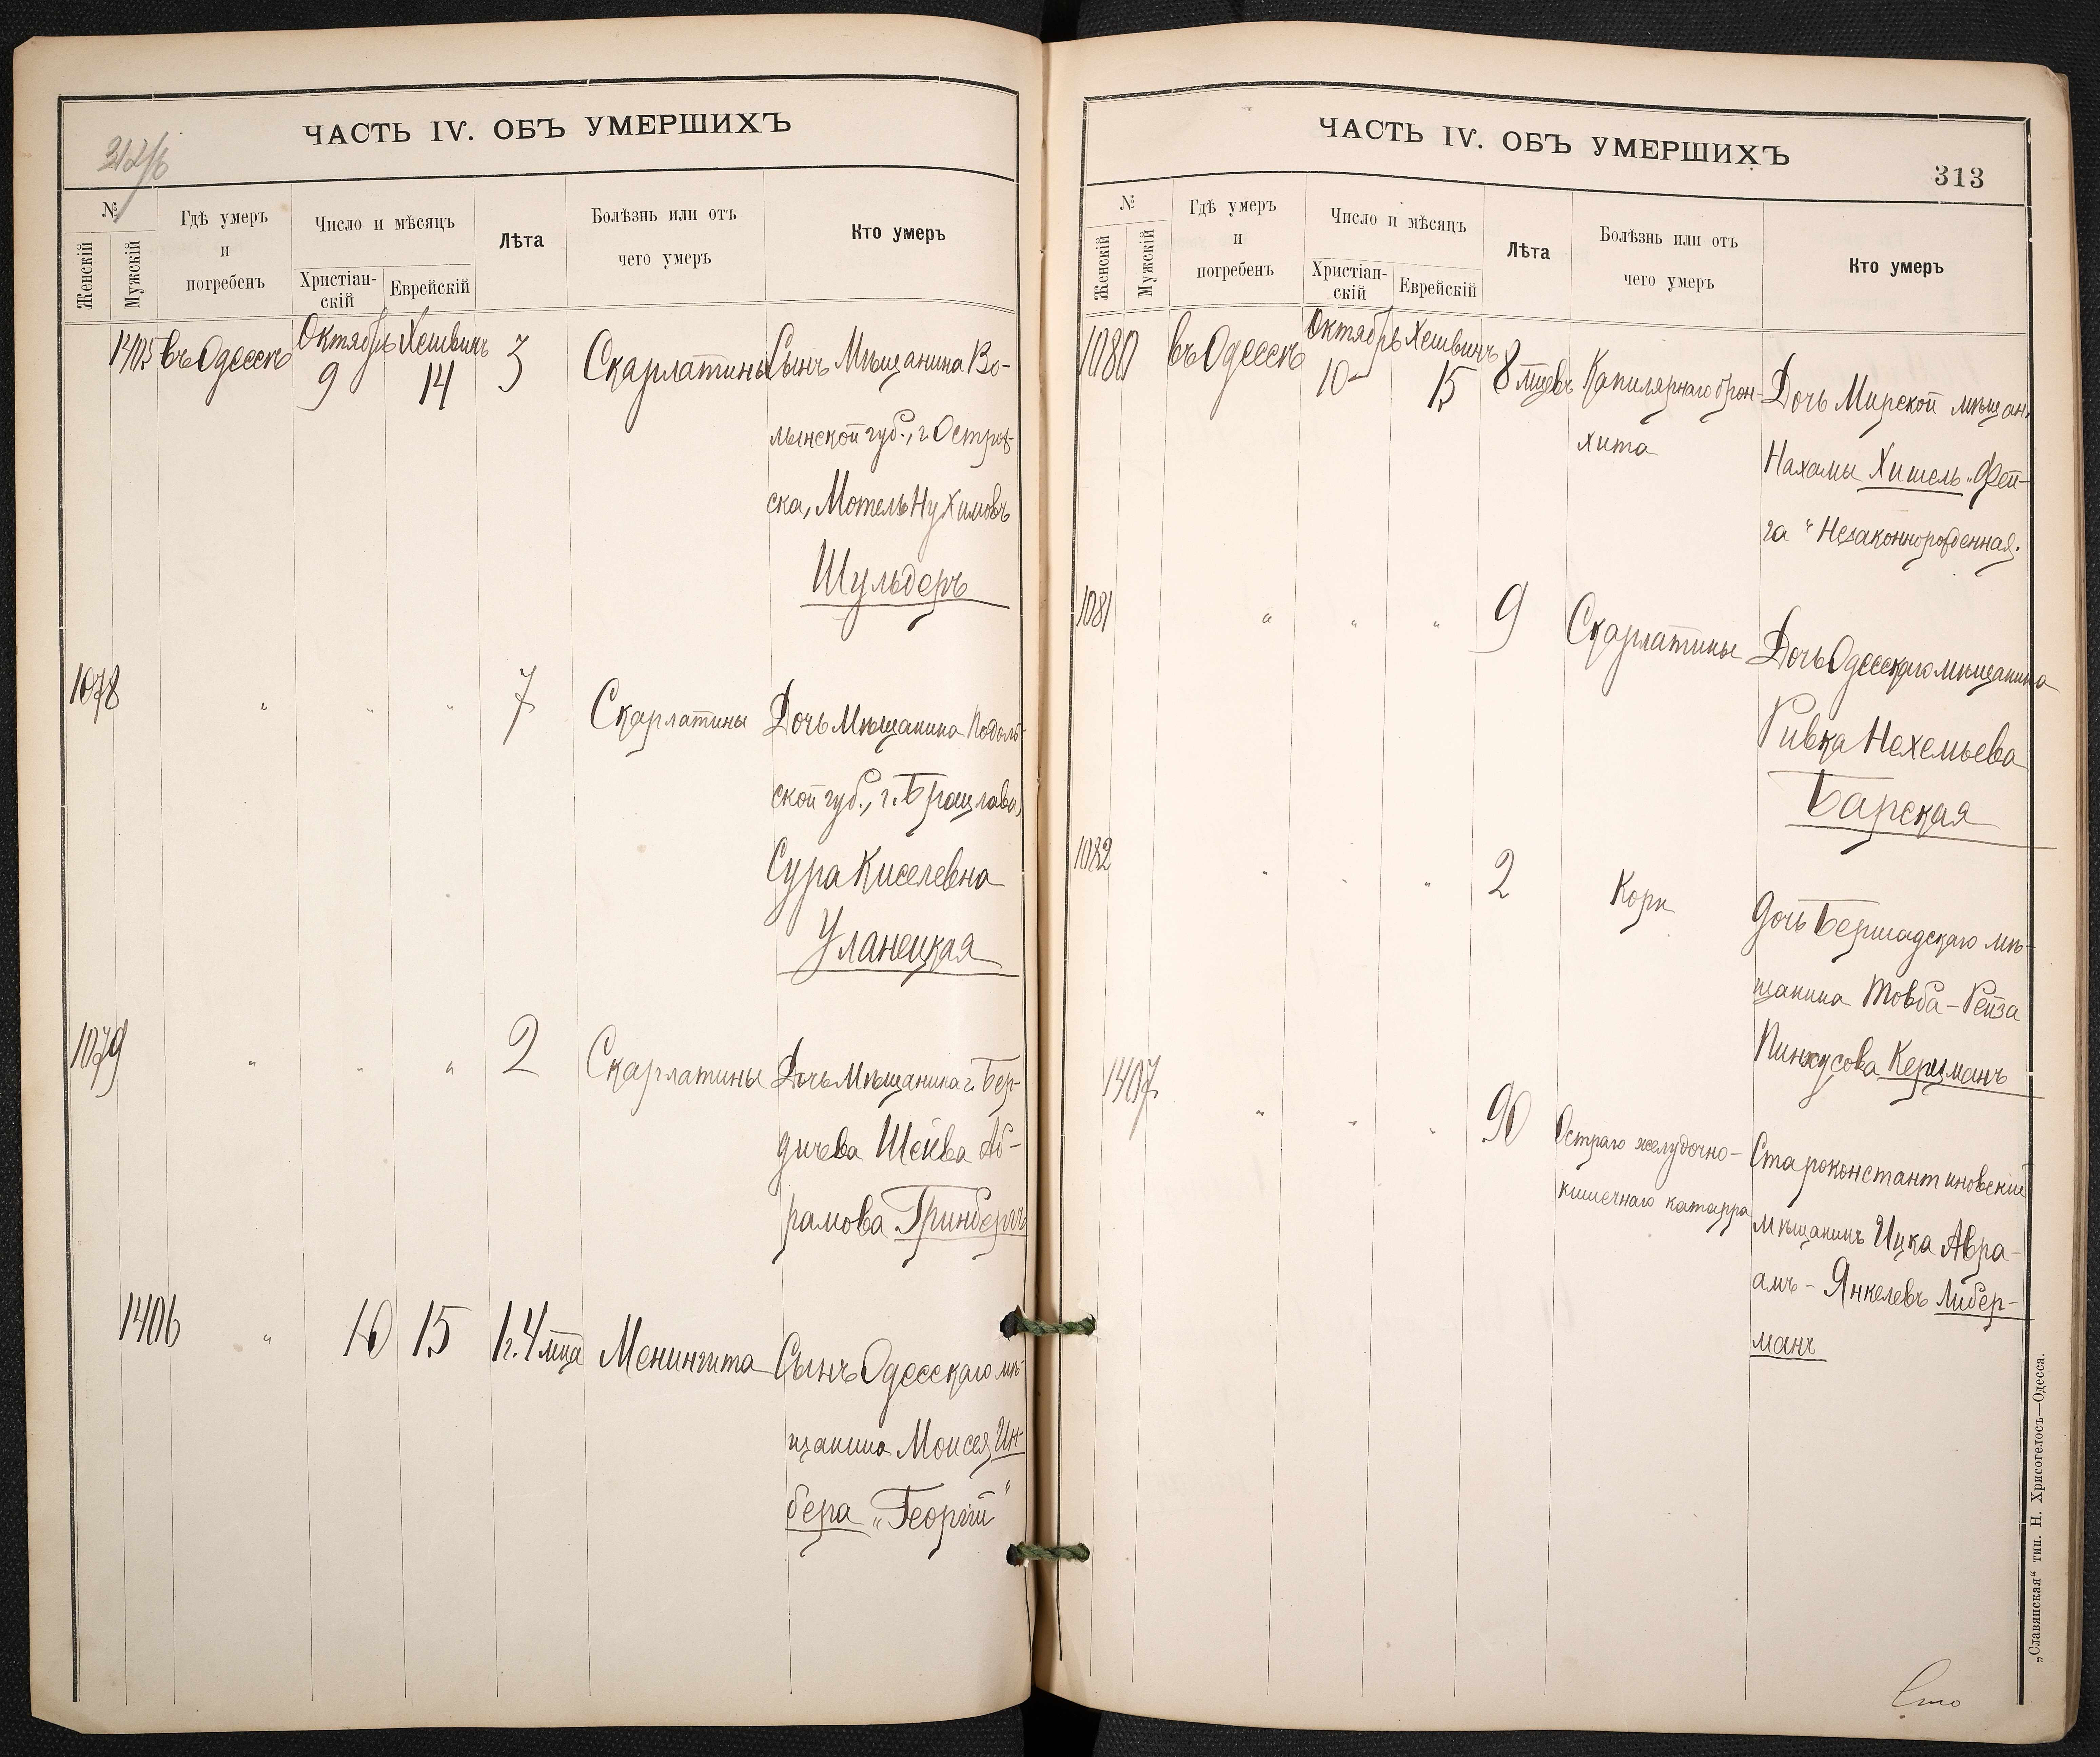 ЧАСТЬ IV. ОБЪ УМЕРШИХЪ
№
Женскій
Мужскій
Гдѣ умеръ
и
погребенъ
Число и мѣсяцъ
Христіан-
скій
Еврейскій
Лѣта
Болѣзнь или отъ
чего умеръ
Кто умеръ
1405 въ Одессѣ Октябрь 9 Хешвинъ 14 3 Скарлатины Сынъ Мѣщанина Во-
лынской губ., г. Остров-
ска, Мотель Нухимовъ
Шульдеръ
1078 " " " 7 Скарлатины Дочь Мѣщанина Подоль-
ской губ., г. Брацлава,
Сура Киселевна
Уланецкая
1079 " " " 2 Скарлатины Дочь Мѣщанина г. Бер-
дичева Шейва Аб-
рамова Гринбергъ
1406 " 10 15 1 г. 4 мца Менингита Сынъ Одесскаго мѣ-
щанина Моисея Ин-
бера „Георгій"
ЧАСТЬ IV. ОБЪ УМЕРШИХЪ
313
№
Женскій
Мужскій
Гдѣ умеръ
и
погребенъ
Число и мѣсяцъ
Христіан-
скій
Еврейскій
Лѣта
Болѣзнь или отъ
чего умеръ
Кто умеръ
1080 въ Одессѣ Октябрь 10 Хешвинъ 15 8 мцевъ Капилярнаго брон-
хита
Дочь Мирской мѣщан.
Нахамы Хишель „Фей-
га" Незаконнорожденная.
1081 " " " 9 Скарлатины Дочь Одесскаго мѣщанина
Ривка Нехемьева
Барская
1082 " " " 2 Кори Дочь Бершадскаго мѣ-
щанина Товба-Рейза
Пинкусова Керцманъ
1407 " " " 90 Остраго желудочно-
кишечнаго катарра
Староконстантиновскій
мѣщанинъ Ицка Авра-
амъ-Янкелевъ Либер-
манъ
„Славянская" тип. Н. Хрисогелосъ—Одесса.